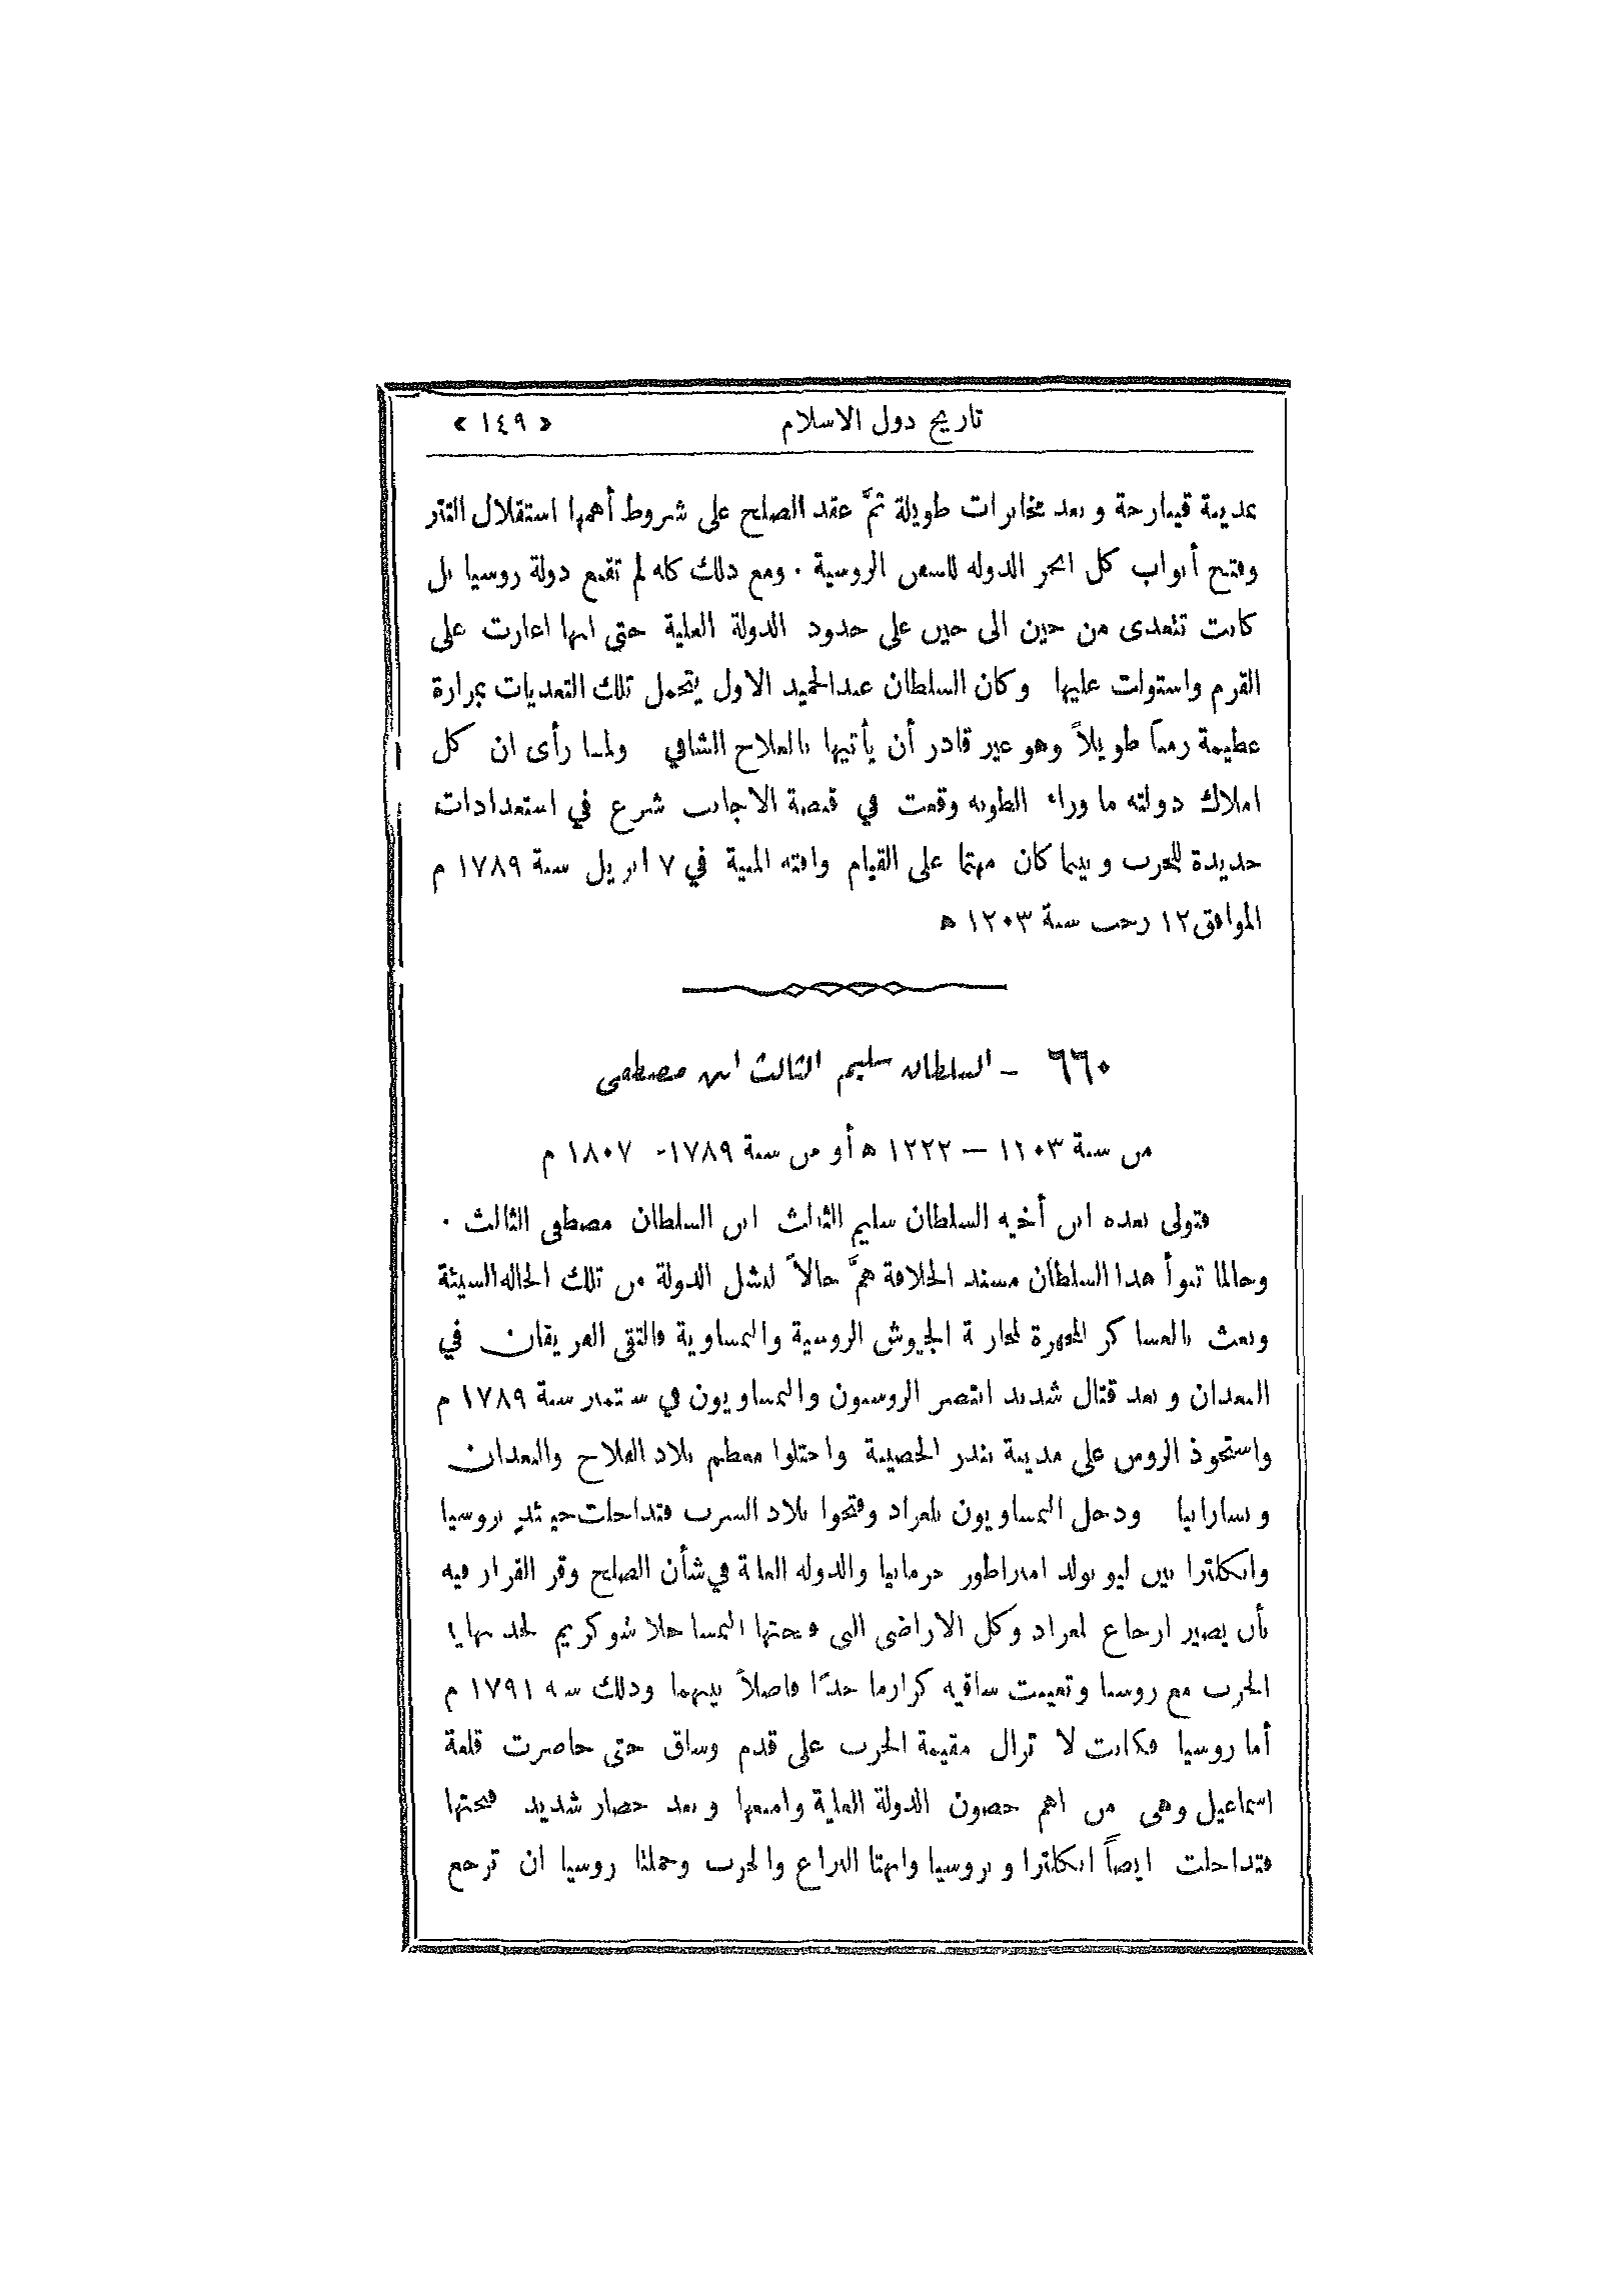 تاريخ دول الاسلام « ١٤٩ »
بمدينة قينارجة وبعد مخابرات طويلة تمَّ عقد الصلح على شروط أهمها استقلال التتر
وفتح أبواب كل ابحر الدوله للسفن الروسية . ومع ذلك كله لم تقنع دولة روسيا بل
كانت تتعدى من حين الى حين على حدود الدولة العلية حتى انها اغارت على
القرم واستولت عليها وكان السلطان عبدالحميد الاول يتحمل تلك التعديات بمرارة
عظيمة زمناً طويلاً وهو غير قادر أن يأتيها بالعلاج الشافي ولما رأى ان كل
املاك دولته ما وراء الطونه وقعت في قبضة الاجانب شرع في استعدادات
جديدة للحرب وبينما كان مهتما على القيام وافته المنية في ٧ ابريل سنة ١٧٨٩ م
الموافق ١٢ رجب سنة ١٢٠٣ ه
٦٦٠ – السلطان سليم الثالث ابن مصطفى
من سنة ١٢٠٣ — ١٢٢٢ ه أو من سنة ١٧٨٩ - ١٨٠٧ م
فتولى بعده ابن أخيه السلطان سليم الثالث ابن السلطان مصطفى الثالث .
وحالما تبوأ هذا السلطان مسند الخلافة همَّ حالاً لنشل الدولة من تلك الحاله السيئة
وبعث بالعساكر المجهرة لمحاربة الجيوش الروسية والنمساوية فالتقى الفريقان في
البغدان وبعد قتال شديد انتصر الروسيون والنمساويون في ستمبر سنة ١٧٨٩ م
واستحوذ الروس على مدينة بندر الحصينة واحتلوا معظم بلاد الفلاح والبغدان
وبسارابيا ودخل النمساويون بلغراد وفتحوا بلاد السرب فتداخلت حينئذٍ بروسيا
وانكلترا بين ليوبولد امبراطور جرمانيا والدوله العلية في شأن الصلح وقر القرار فيه
بأن يصير ارجاع بلغراد وكل الاراضى التى فتحتها النمسا خلا شوكريم لحد نهاية
الحرب مع روسيا وتعينت ساقيه كرارما حدًا فاصلاً بينهما وذلك سنه ١٧٩١ م
أما روسيا فكانت لا تزال مقيمة الحرب على قدم وساق حتى حاصرت قلعة
اسماعيل وهى من اهم حصون الدولة العلية وامنعها وبعد حصار شديد فتحتها
فتداخلت ايضاً انكلترا وبروسيا وانهتا النزاع والحرب وحملتا روسيا ان ترجع